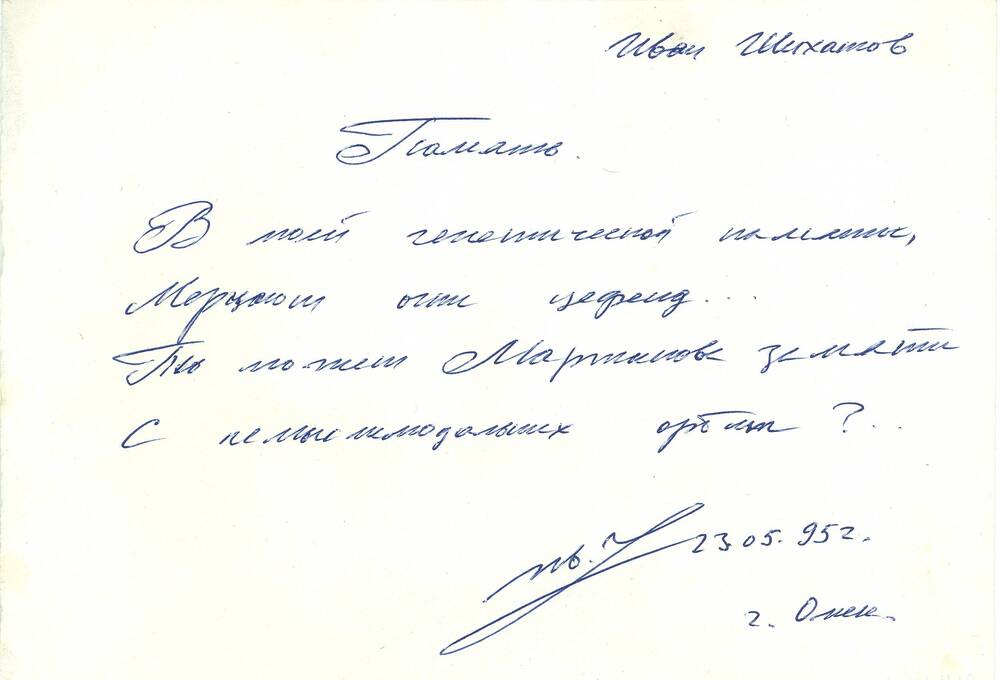 Иван Шихатов
Память.
В моей генетической памяти,
Мерцают огни цефеид...
То может Мартынова замяти
С немыслимодальних орбит?...
23.05.95г.
г. Омск.